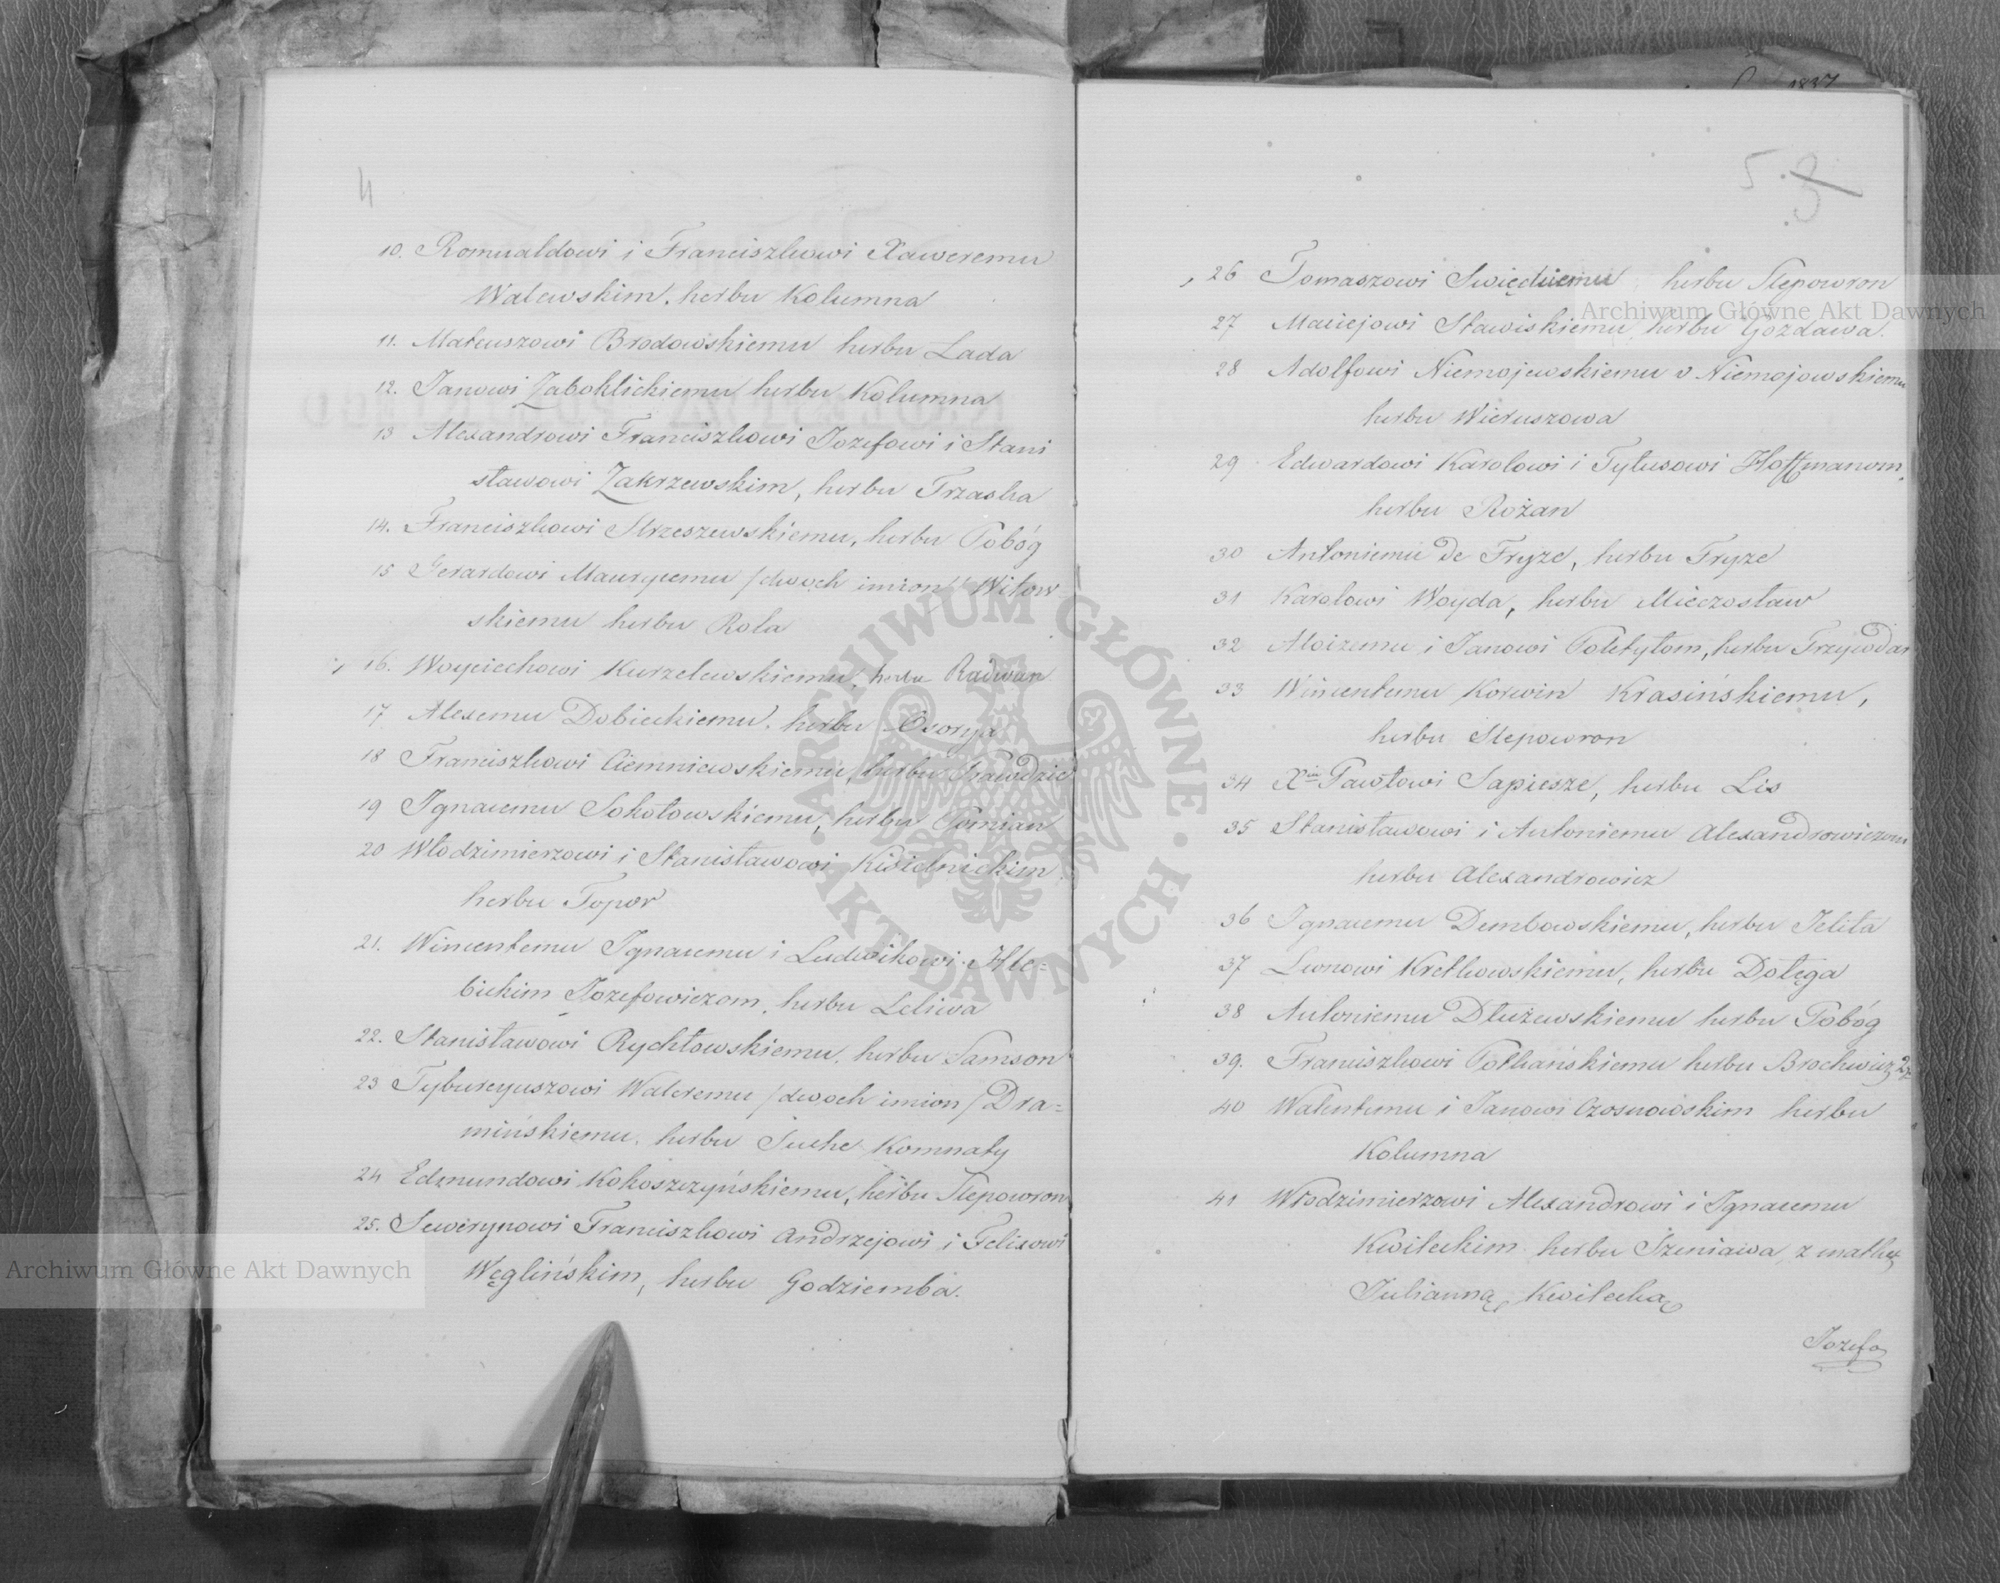 4
10. Romualdowi i Franciszkowi Xaweremu
Walewskim, herbu Kolumna
11. Mateuszowi Brodowskiemu herbu Łada
12. Janowi Zaboklickiemu herbu Kolumna
13 Alexandrowi Franciszkowi Jozefowi i Stani
sławowi Zakrzewskim, herbu Trzaska
14. Franciszkowi Strzeszewskiemu, herbu Pobóg
15 Gerardowi Maurycemu /dwoch imion/ Witow
skiemu herbu Rola
16. Woyciechowi Kurzelewskiemu, herbu Radwan
17 Alexemu Dobieckiemu, herbu Ossorya
18 Franciszkowi Ciemniewskiemu, herbu Prawdzic
19 Ignacemu Sokołowskiemu, herbu Pomian
20 Włodzimierzowi i Stanisławowi Kisielnickim
herbu Topor
21. Wincentemu Ignacemu i Ludwikowi Hle=
bickim Jozefowiczom, herbu Leliwa
22. Stanisławowi Rychłowskiemu, herbu Samson
23 Tyburcyuszowi Waleremu /dwoch imion/ Dra=
mińskiemu, herbu Suche Komnaty
24 Edmundowi Kokoszczyńskiemu, herbu Slepowron
25. Sewerynowi Franciszkowi Andrzejowi i Felixowi
Węglińskim, herbu Godziemba.
5 3
26 Tomaszowi Swięckiemu, herbu Slepowron
27 Maciejowi Stawiskiemu, herbu Gozdawa.
28 Adolfowi Niemojewskiemu v Niemojowskiemu
herbu Wieruszowa
29 Edwardowi Karolowi i Tytusowi Hoffmanom,
herbu Rożan
30 Antoniemu de Fryze, herbu Fryze
31 Karolowi Woyda, herbu Mieczosław
32 Aloizemu i Janowi Poletyłom, herbu Trzywdar
33 Wincentemu Korwin Krasińskiemu,
herbu Slepowron
34 Xciu Pawłowi Sapiesze, herbu Lis
35 Stanisławowi i Antoniemu Alexandrowiczom
herbu Alexandrowicz
36 Ignacemu Dembowskiemu, herbu Jelita
37 Leonowi Kretkowskiemu, herbu Dołęga
38 Antoniemu Dłużewskiemu herbu Pobóg
39. Franciszkowi Potkańskiemu herbu Brochwicz 2
40 Walentemu i Janowi Czosnowskim herbu
Kolumna
41 Włodzimierzowi Alexandrowi i Ignacemu
Kwileckim herbu Szeniawa, z matką
Julianną Kwilecką
Jozefo
Archiwum Główne Akt Dawnych
Archiwum Główne Akt Dawnych
ARCHIWUM GŁÓWNE · AKT DAWNYCH ·